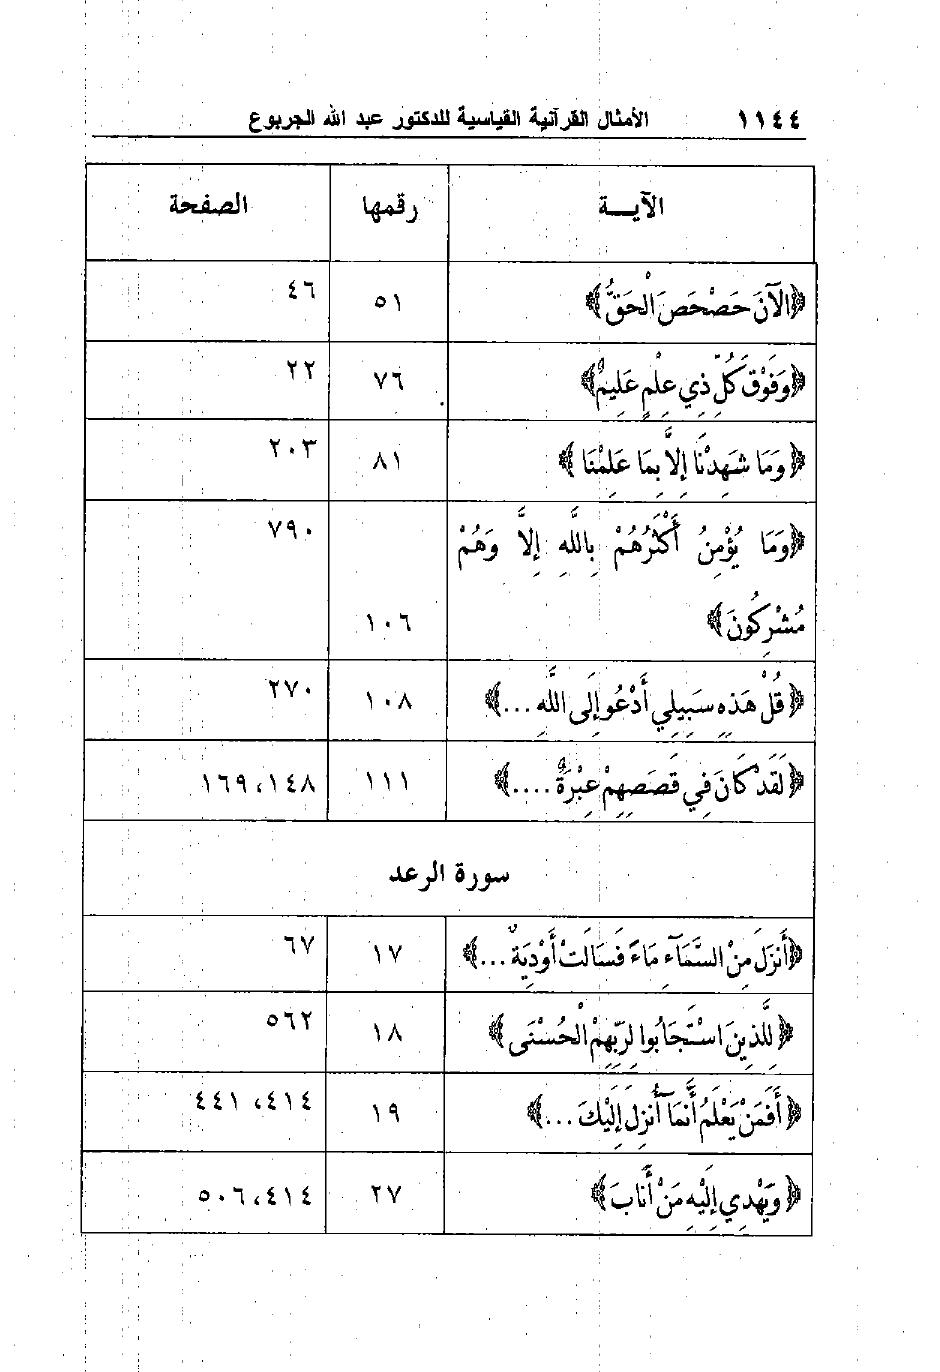 ١١٤٤ الأمثال القرآنية القياسية للدكتور عبد الله الجربوع
الآيـــة رقمها الصفحة
﴿الآنَ حَصْحَصَ الْحَقُّ﴾ ٥١ ٤٦
﴿وَفَوْقَ كُلِّ ذِي عِلْمٍ عَلِيمٌ﴾ ٧٦ ٢٢
﴿وَمَا شَهِدْنَا إِلاَّ بِمَا عَلِمْنَا﴾ ٨١ ٢٠٣
﴿وَمَا يُؤْمِنُ أَكْثَرُهُمْ بِاللَّهِ إِلاَّ وَهُمْ ٧٩٠
مُشْرِكُونَ﴾ ١٠٦
﴿قُلْ هَذِهِ سَبِيلِي أَدْعُو إِلَى اللَّهِ ...﴾ ١٠٨ ٢٧٠
﴿لَقَدْ كَانَ فِي قَصَصِهِمْ عِبْرَةٌ ....﴾ ١١١ ١٤٨، ١٦٩
سورة الرعد
﴿أَنزَلَ مِنْ السَّمَآءِ مَاءً فَسَالَتْ أَوْدِيَةٌ ...﴾ ١٧ ٦٧
﴿لِلَّذِينَ اسْتَجَابُوا لِرَبِّهِمْ الْحُسْنَى﴾ ١٨ ٥٦٢
﴿أَفَمَنْ يَعْلَمُ أَنَّمَآ أُنزِلَ إِلَيْكَ ...﴾ ١٩ ٤١٤، ٤٤١
﴿وَيَهْدِي إِلَيْهِ مَنْ أَنَابَ﴾ ٢٧ ٤١٤، ٥٠٦